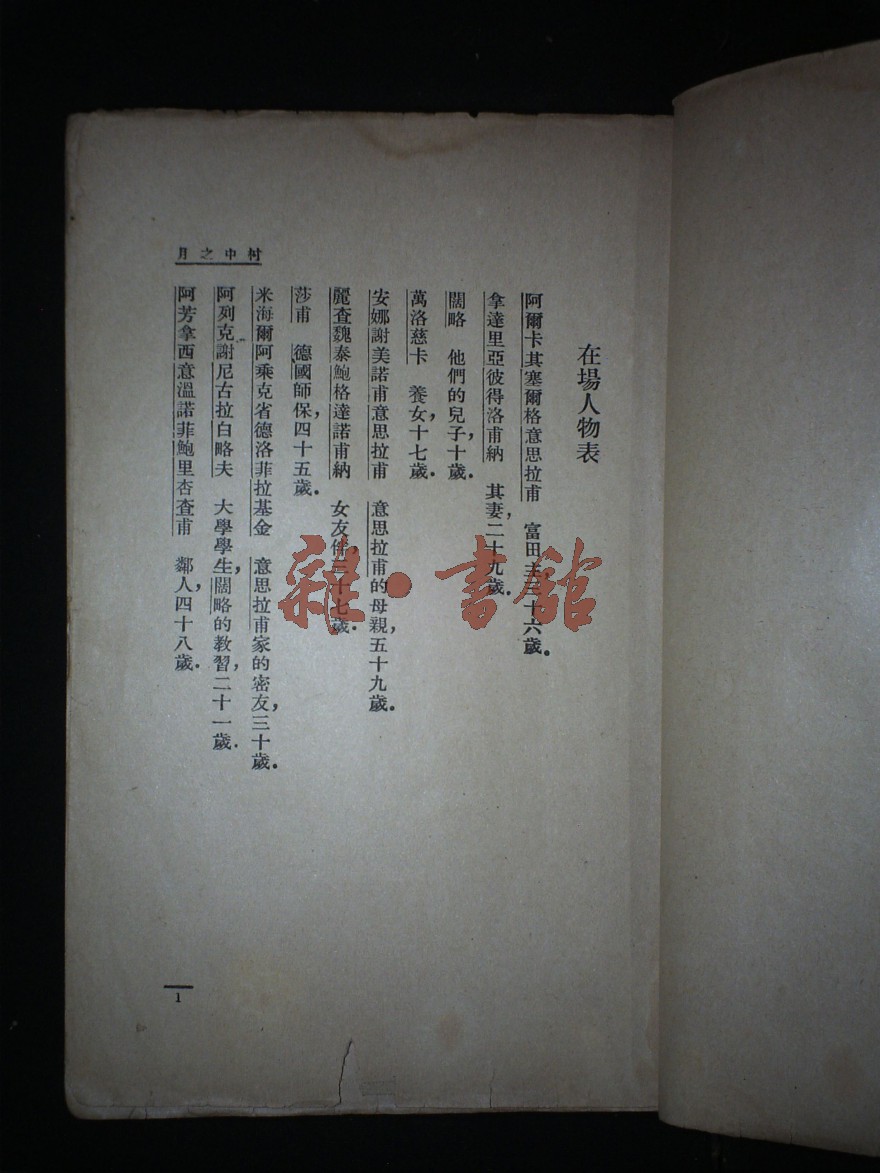 村中之月
在場人物表
阿爾卡其塞爾格意思拉甫　富田主三十六歲．
拿達里亞彼得洛甫納　其妻，二十九歲．
闊略　他們的兒子，十歲．
萬洛慈卡　養女，十七歲．
安娜謝美諾甫意思拉甫　意思拉甫的母親，五十九歲．
麗查魏泰鮑格達諾甫納　女友伴，三十七歲．
莎甫　德國師保，四十五歲．
米海爾阿乘克省德洛菲拉基金　意思拉甫家的密友，三十歲．
阿列克謝尼古拉白略夫　大學學生，闊略的教習，二十一歲．
阿芳拿西意溫諾菲鮑里杏查甫　鄰人，四十八歲．
1
雜·書館